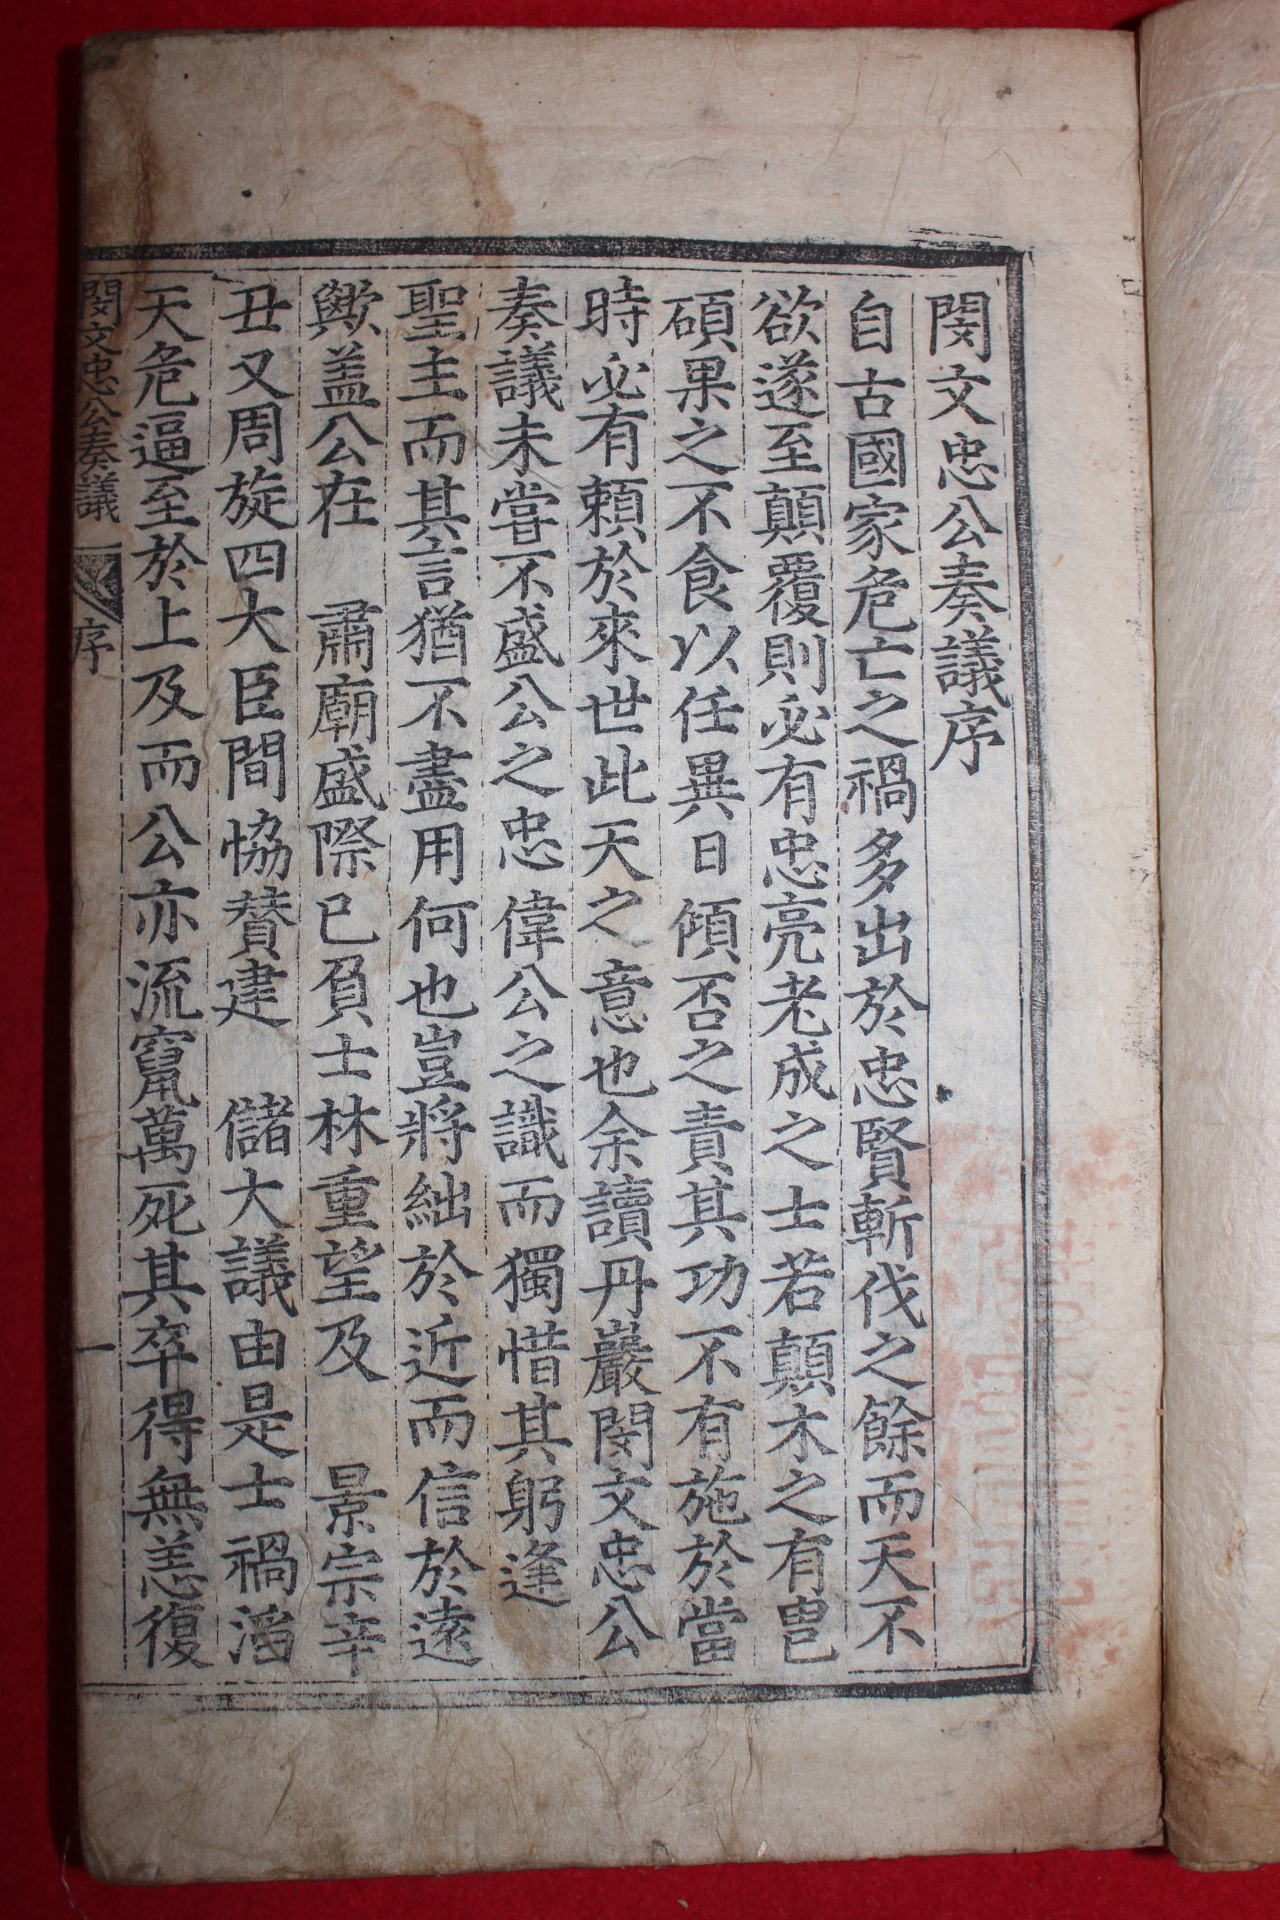 閔文忠公奏議序
自古國家危亡之禍多出於忠賢斬伐之餘而天不
欲遂至顚覆則必有忠亮老成之士若顚木之有甹
碩果之不食以任異日傾否之責其功不有施於當
時必有賴於來世此天之意也余讀丹巖閔文忠公
奏議未嘗不盛公之忠偉公之識而獨惜其躬逢
聖主而其言猶不盡用何也豈將絀於近而信於遠
歟盖公在 肅廟盛際已負士林重望及 景宗辛
丑又周旋四大臣間恊賛建 儲大議由是士禍滔
天危逼至於上及而公亦流竄萬死其卒得無恙復
閔文忠公奏議 序 一